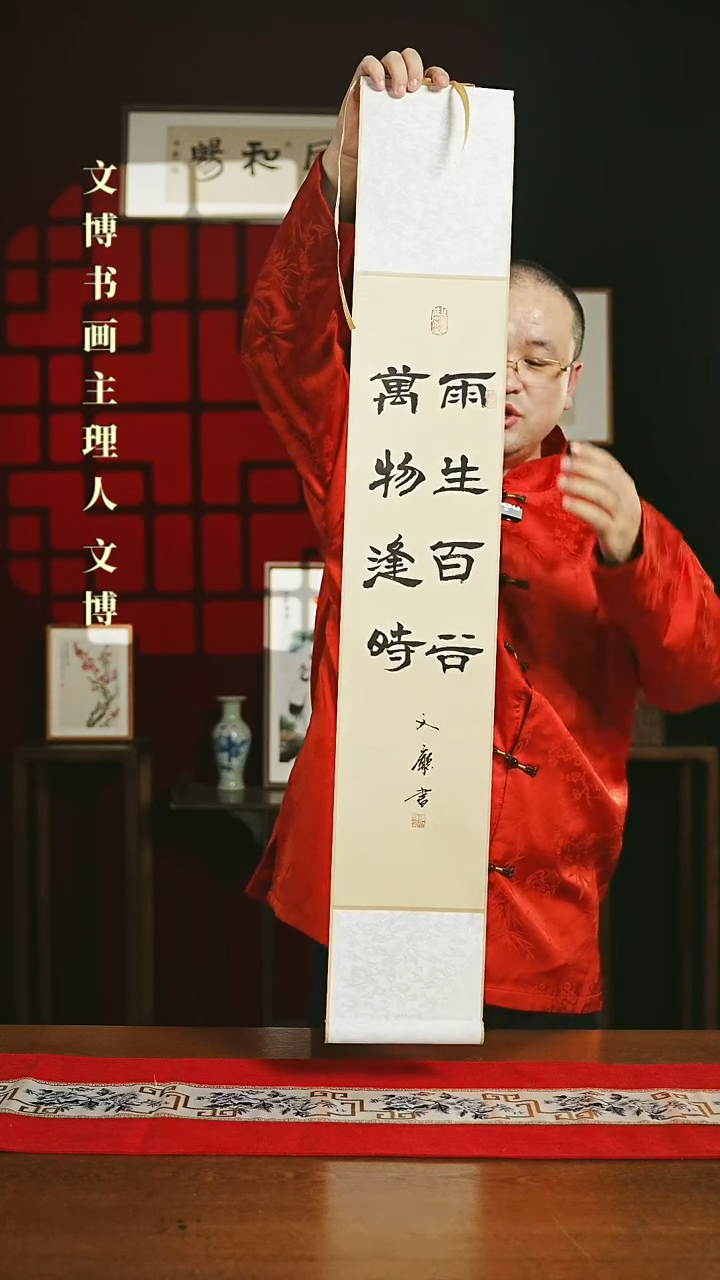 文博书画主理人 文博
雨生百谷
萬物逢時
文廳書
和暢